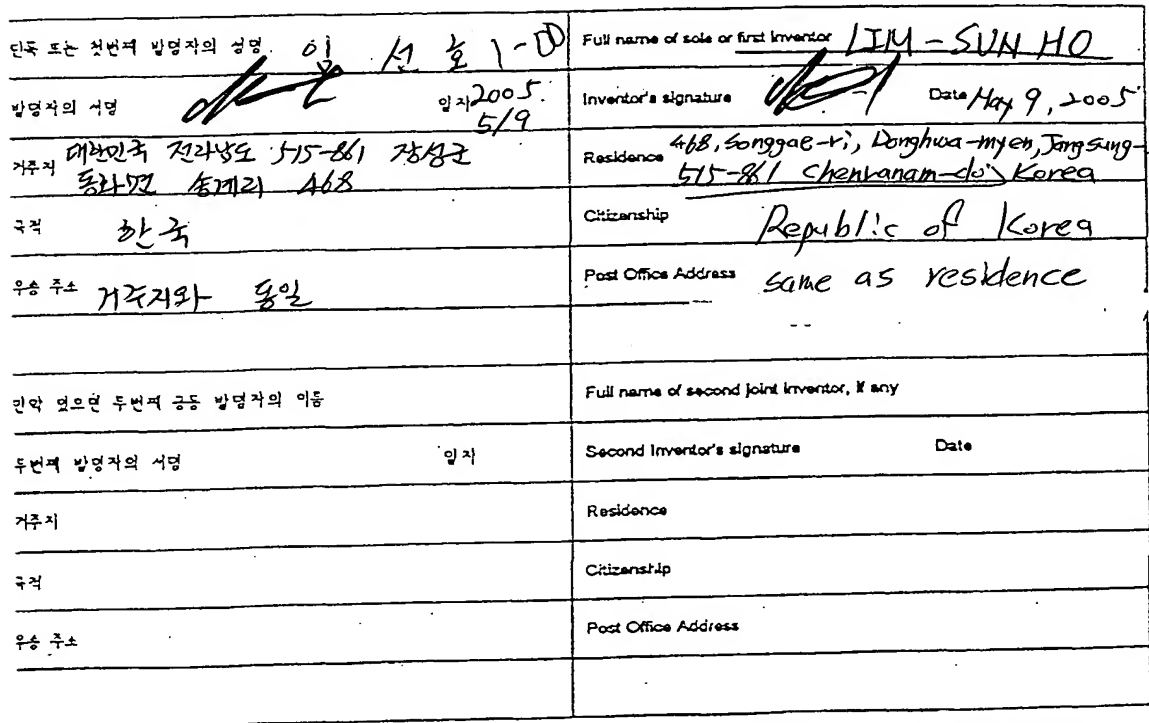 단독 또는 첫번째 발명자의 성명 임 선 호 1-00
발명자의 서명 일자 2005. 5/9
거주지 대한민국 전라남도 515-861 장성군
동화면 송계리 468
국적 한국
우송 주소 거주지와 동일
만약 있으면 두번째 공동 발명자의 이름
두번째 발명자의 서명 일자
거주지
국적
우송 주소
Full name of sole or first inventor LIM-SUN HO
Inventor's signature Date May 9, 2005
Residence 468, Songgae-ri, Donghwa-myen, Jang sung-
515-861 Chenranam-do, Korea
Citizenship Republic of Korea
Post Office Address same as residence
Full name of second joint inventor, if any
Second Inventor's signature Date
Residence
Citizenship
Post Office Address